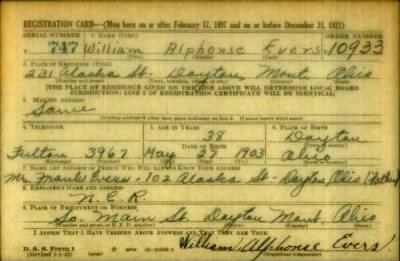 REGISTRATION CARD—(Men born on or after February 17, 1897 and on or before December 31, 1921)
SERIAL NUMBER 1. NAME (Print) ORDER NUMBER
T 747 William Alphonse Evers 10933
2. PLACE OF RESIDENCE (Print)
231 Alaska St. Dayton, Mont. Ohio
[THE PLACE OF RESIDENCE GIVEN ON THE LINE ABOVE WILL DETERMINE LOCAL BOARD
JURISDICTION; LINE 2 OF REGISTRATION CERTIFICATE WILL BE IDENTICAL]
3. MAILING ADDRESS
Same
4. TELEPHONE 5. AGE IN YEARS 6. PLACE OF BIRTH
38 Dayton
DATE OF BIRTH
Fulton 3967 May 27 1903 Ohio
7. NAME AND ADDRESS OF PERSON WHO WILL ALWAYS KNOW YOUR ADDRESS
Mr. Evers - 102 Alaska St - Dayton, Ohio (Father)
8. EMPLOYER'S NAME AND ADDRESS
N.C.R.
9. PLACE OF EMPLOYMENT OR BUSINESS
So. Main St. Dayton Mont. Ohio
I AFFIRM THAT I HAVE VERIFIED ABOVE ANSWERS AND THAT THEY ARE TRUE.
D. S. S. Form 1
William Alphonse Evers